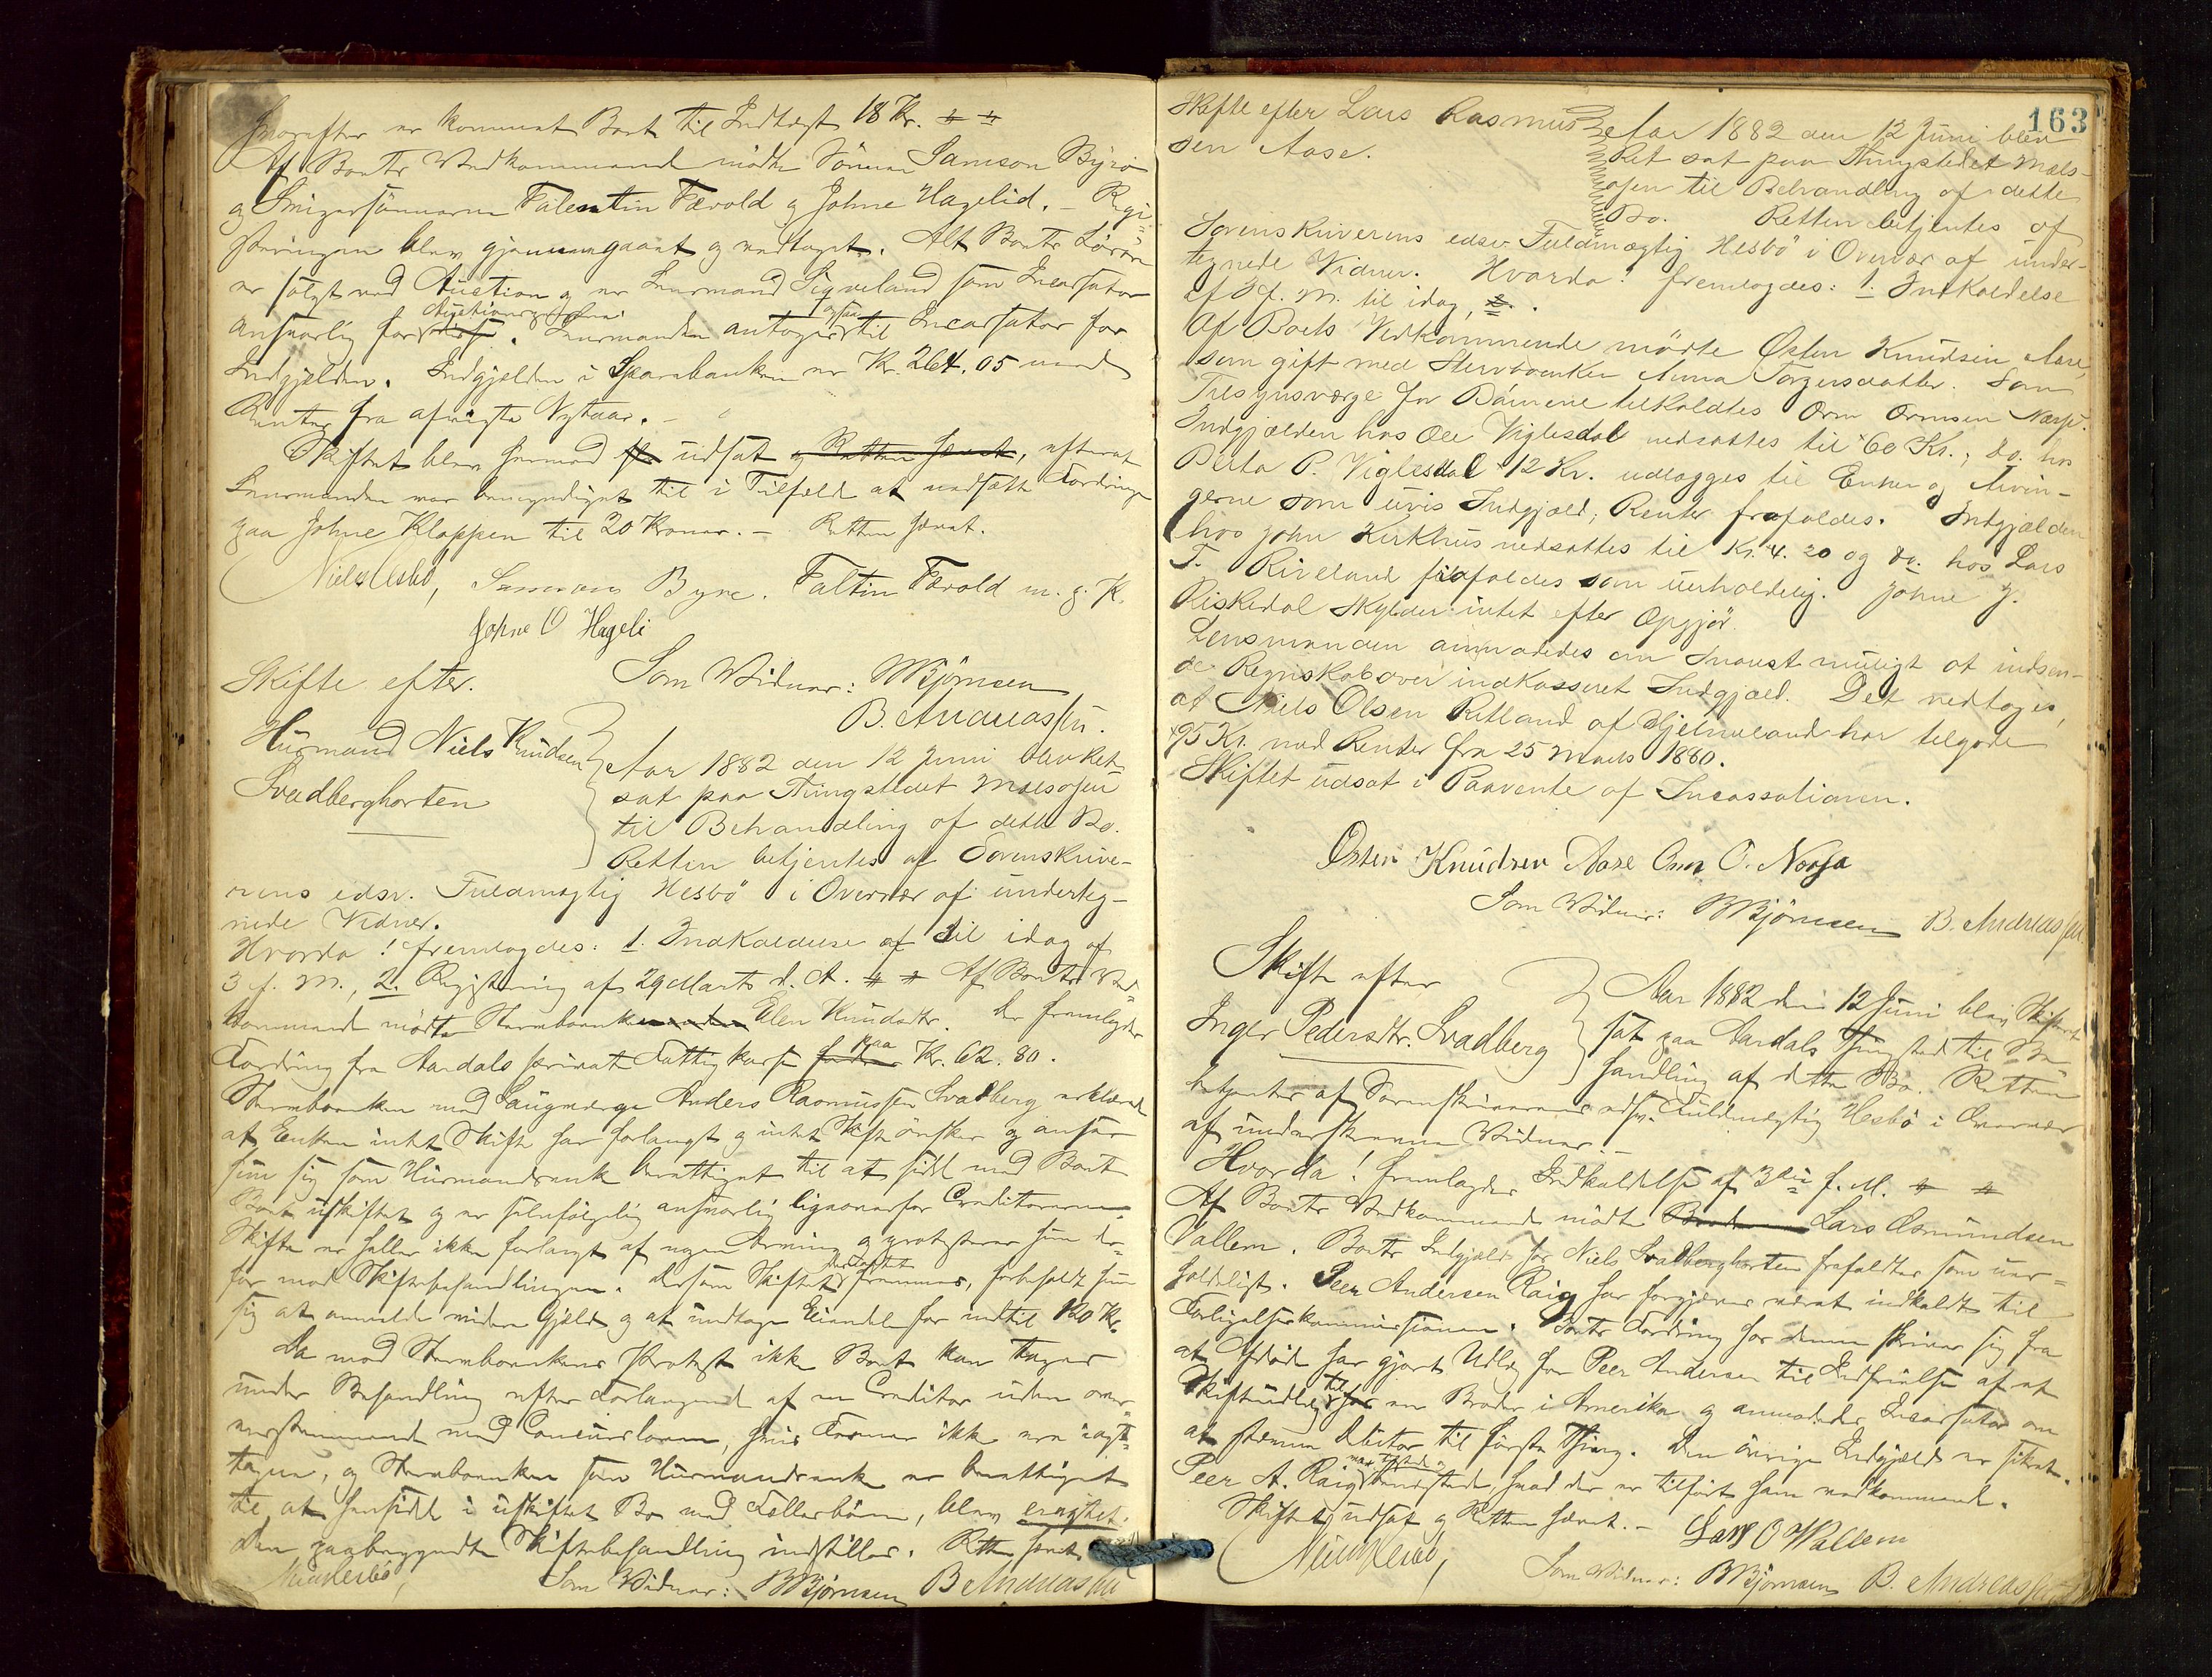 hvorefter er kommet Boet til Indtægt 18 Kr. # #
Af Boets Vedkommende mødte Sønnen Samson Byrø
og Svigersønnerne Falentin Tævold og Johne Hagelid. - Regi-
streringen blev gjennemgaaet og vedtaget. Alt Boets Løsøre
er solgt ved Auction og er Lensmand Sigveland som Incassator
ansvarlig for Auctions
Lensmanden antoges ogsaa til Incassator for
Indgjelden. Indgjelden i Sparebanken er Kr. 264.05 med
Renter fra afvigte Nytaar. -
Skiftet blev hermed udsat og Retten hævet, efterat
Lensmanden var bemyndiget til i Tilfælde at nedsætte Fordringen
paa Johne Kloppen til 20 Kroner. - Retten hævet.
Niels Hesbö, Samson Byre. Faltin Tævold m. p. K.
Johne O Hageli
Som Vidner: BBjörnsen
B. Andreassen.
Skifte efter.
Husmand Niels Knudsen
Svadberghorten
Aar 1882 den 12 Juni blev Ret
sat paa Thingstedet Mælsosen
til Behandling af dette Bo.
Retten betjentes af Sorenskrive-
rens edsv. Fuldmægtig Hesbö i Overvær af underteg-
nede Vidner.
Hvorda! fremlagdes: 1. Indkaldelse af til idag af
3 f. M., 2. Registrering af 29 Marts d. A. # # Af Boets Ved-
kommende mødte Stervboenken Elen Knudsdtr. Der fremlagdes
Fordring fra Aardals private Fattigkasse paa Kr. 62.80.
Stervboenken med Laugværge Anders Rasmussen Svadberg erklærede
at Enken intet Skifte har forlangt og intet Skifte ønsker og anser
hun sig som Husmandsenke berettiget til at sidde med Boet
Boet uskiftet og er selvfølgelig ansvarlig ligeoverfor Creditorerne.
Skifte er heller ikke forlangt af nogen Arving og protesterer hun der-
for mod Skiftebehandlingen. Dersom Skiftet fremmes, forbeholdt hun
sig at anmelde videre Gjæld og at undtage Eiendele for indtil 120 Kr.
Da mod Stervboenkens Protest ikke Boet kan tages
under Behandling efter Forlangende af en Creditor uden over-
ensstemmende med Concursloven, hvis Former ikke ere iagt-
tagne, og Stervboenken som Husmandsenke er berettiget
til at hensidde i uskiftet Bo med Fællesbörn, blev eragtet:
Den paabegyndte Skiftebehandling indstilles. Retten hævet.
Niels Hesbö,
Som Vidner: BBjörnsen B Andreassen
163
Skifte efter Lars Rasmus-
sen Aase.
Aar 1882 den 12 Juni blev
Ret sat paa Thingstedet Mæls-
osen til Behandling af dette
Bo. Retten betjentes af
Sorenskriverens edsv. Fuldmægtig Hesbö i Overvær af under-
tegnede Vidner. Hvorda! fremlagdes: 1. Indkaldelse
af 3 f. M. til idag, #.
Af Boets Vedkommende mödte Østen Knudsen Aase,
som gift med Stervboenken Anna Torgersdatter. Som
Tilsynsværge for Börnene tilkaldtes Orm Ormsen Næsse.
Indgjælden hos Ole Viglesdal nedsattes til 60 Kr.; do. hos
Berta P. Viglesdal 12 Kr. udlægges til Enken og Arvin-
gerne som uvis Indgjæld, Renter frafaldes. Indgjælden
hos John Kirkhus nedsattes til Kr. 4.20 og do. hos Lars
T. Riveland frafaldes som uerholdelig. Johne J.
Riskedal skylder intet efter Opgjör.
Lensmanden anmodedes om snarest muligt at indsen-
de Regnskab over indkasseret Indgjæld. Det vedtoges,
at Niels Olsen Ritland af Hjelmeland har tilgode
95 Kr. med Renter fra 25 Marts 1880.
Skiftet udsat i Paavente af Incassationen.
Østen Knudsen Aase Orm O. Næsse
Som Vidner: BBjörnsen B. Andreassen.
Skifte efter
Inger Pedersdtr. Svadberg
Aar 1882 den 12 Juni blev Skifteret
sat paa Aardals Thingsted til Be-
handling af dette Bo. Retten
betjentes af Sorenskriverens edsv. Fuldmægtig Hesbö i Overvær
af underskrevne Vidner. -
Hvorda! fremlagdes Indkaldelse af 3die f. M. # #
Af Boets Vedkommende mødte Lars Osmundsen
Vallem. Boets Indgjæld hos Niels Svadberghorten frafaldtes som uer-
holdeligt. Peer Andersen Raig har forgjæves været indkaldt til
Forligelseskommissionen. Boets Fordring hos denne skriver sig fra
at Afdöde har gjort Udlæg for Peer Andersen til Indfrielse af et
Skifteudlæg til en Broder i Amerika og anmodedes Incassator om
at stevne Debitor til første Thing. Den øvrige Indgjæld er sikret.
Peer A. Raig benægtede, hvad der er tilført ham vedkommende.
Skiftet udsat og Retten hævet. - Lars O Wallem
Niels Hesbö,
Som Vidner: BBjörnsen B. Andreassen